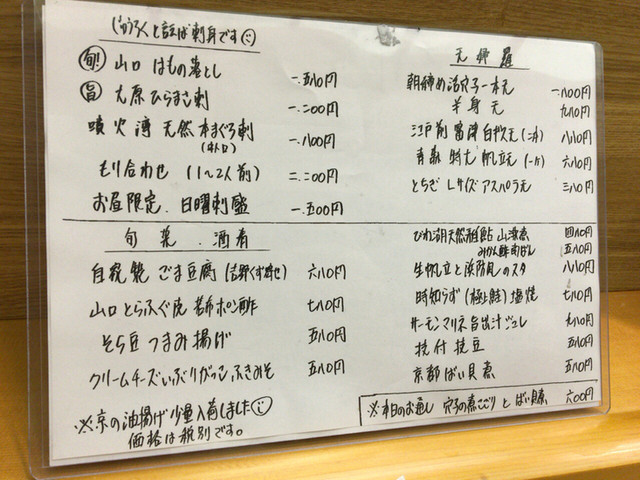 じゅうろくと言えば刺身です
旬! 山口 はもの落とし 一.五八〇円
旨 大原 ひらまさ刺 一.二〇〇円
噴火湾 天然本まぐろ刺 一.八〇〇円
(中トロ)
もり合わせ (1〜2人前) 二.二〇〇円
お昼限定.日曜刺盛 一.五〇〇円
旬菜.酒肴
自家製 ごま豆腐(吉野くず寄せ) 六八〇円
山口 とらふぐ皮 若布ポン酢 七八〇円
そら豆つまみ揚げ 五八〇円
クリームチーズいぶりがっこふきみそ 五八〇円
※京の油揚げ少量入荷しました
価格は税別です。
天婦羅
朝締め活穴子一本天 一.八〇〇円
半身天 九八〇円
江戸前 富津 白ギス天(二本) 八八〇円
青森 特大 帆立天(一ケ) 六八〇円
とちぎ Lサイズ アスパラ天 三八〇円
びわ湖天然稚鮎 山椒煮 四八〇円
五八〇円
生帆立と 八八〇円
時知らず(極上鮭)塩焼 七八〇円
サーモンマリネ旨出汁ジュレ 九八〇円
枝付枝豆 五八〇円
京都ばい貝煮 五八〇円
※本日のお通し 穴子の煮こごり と ばい貝煮 六〇〇円